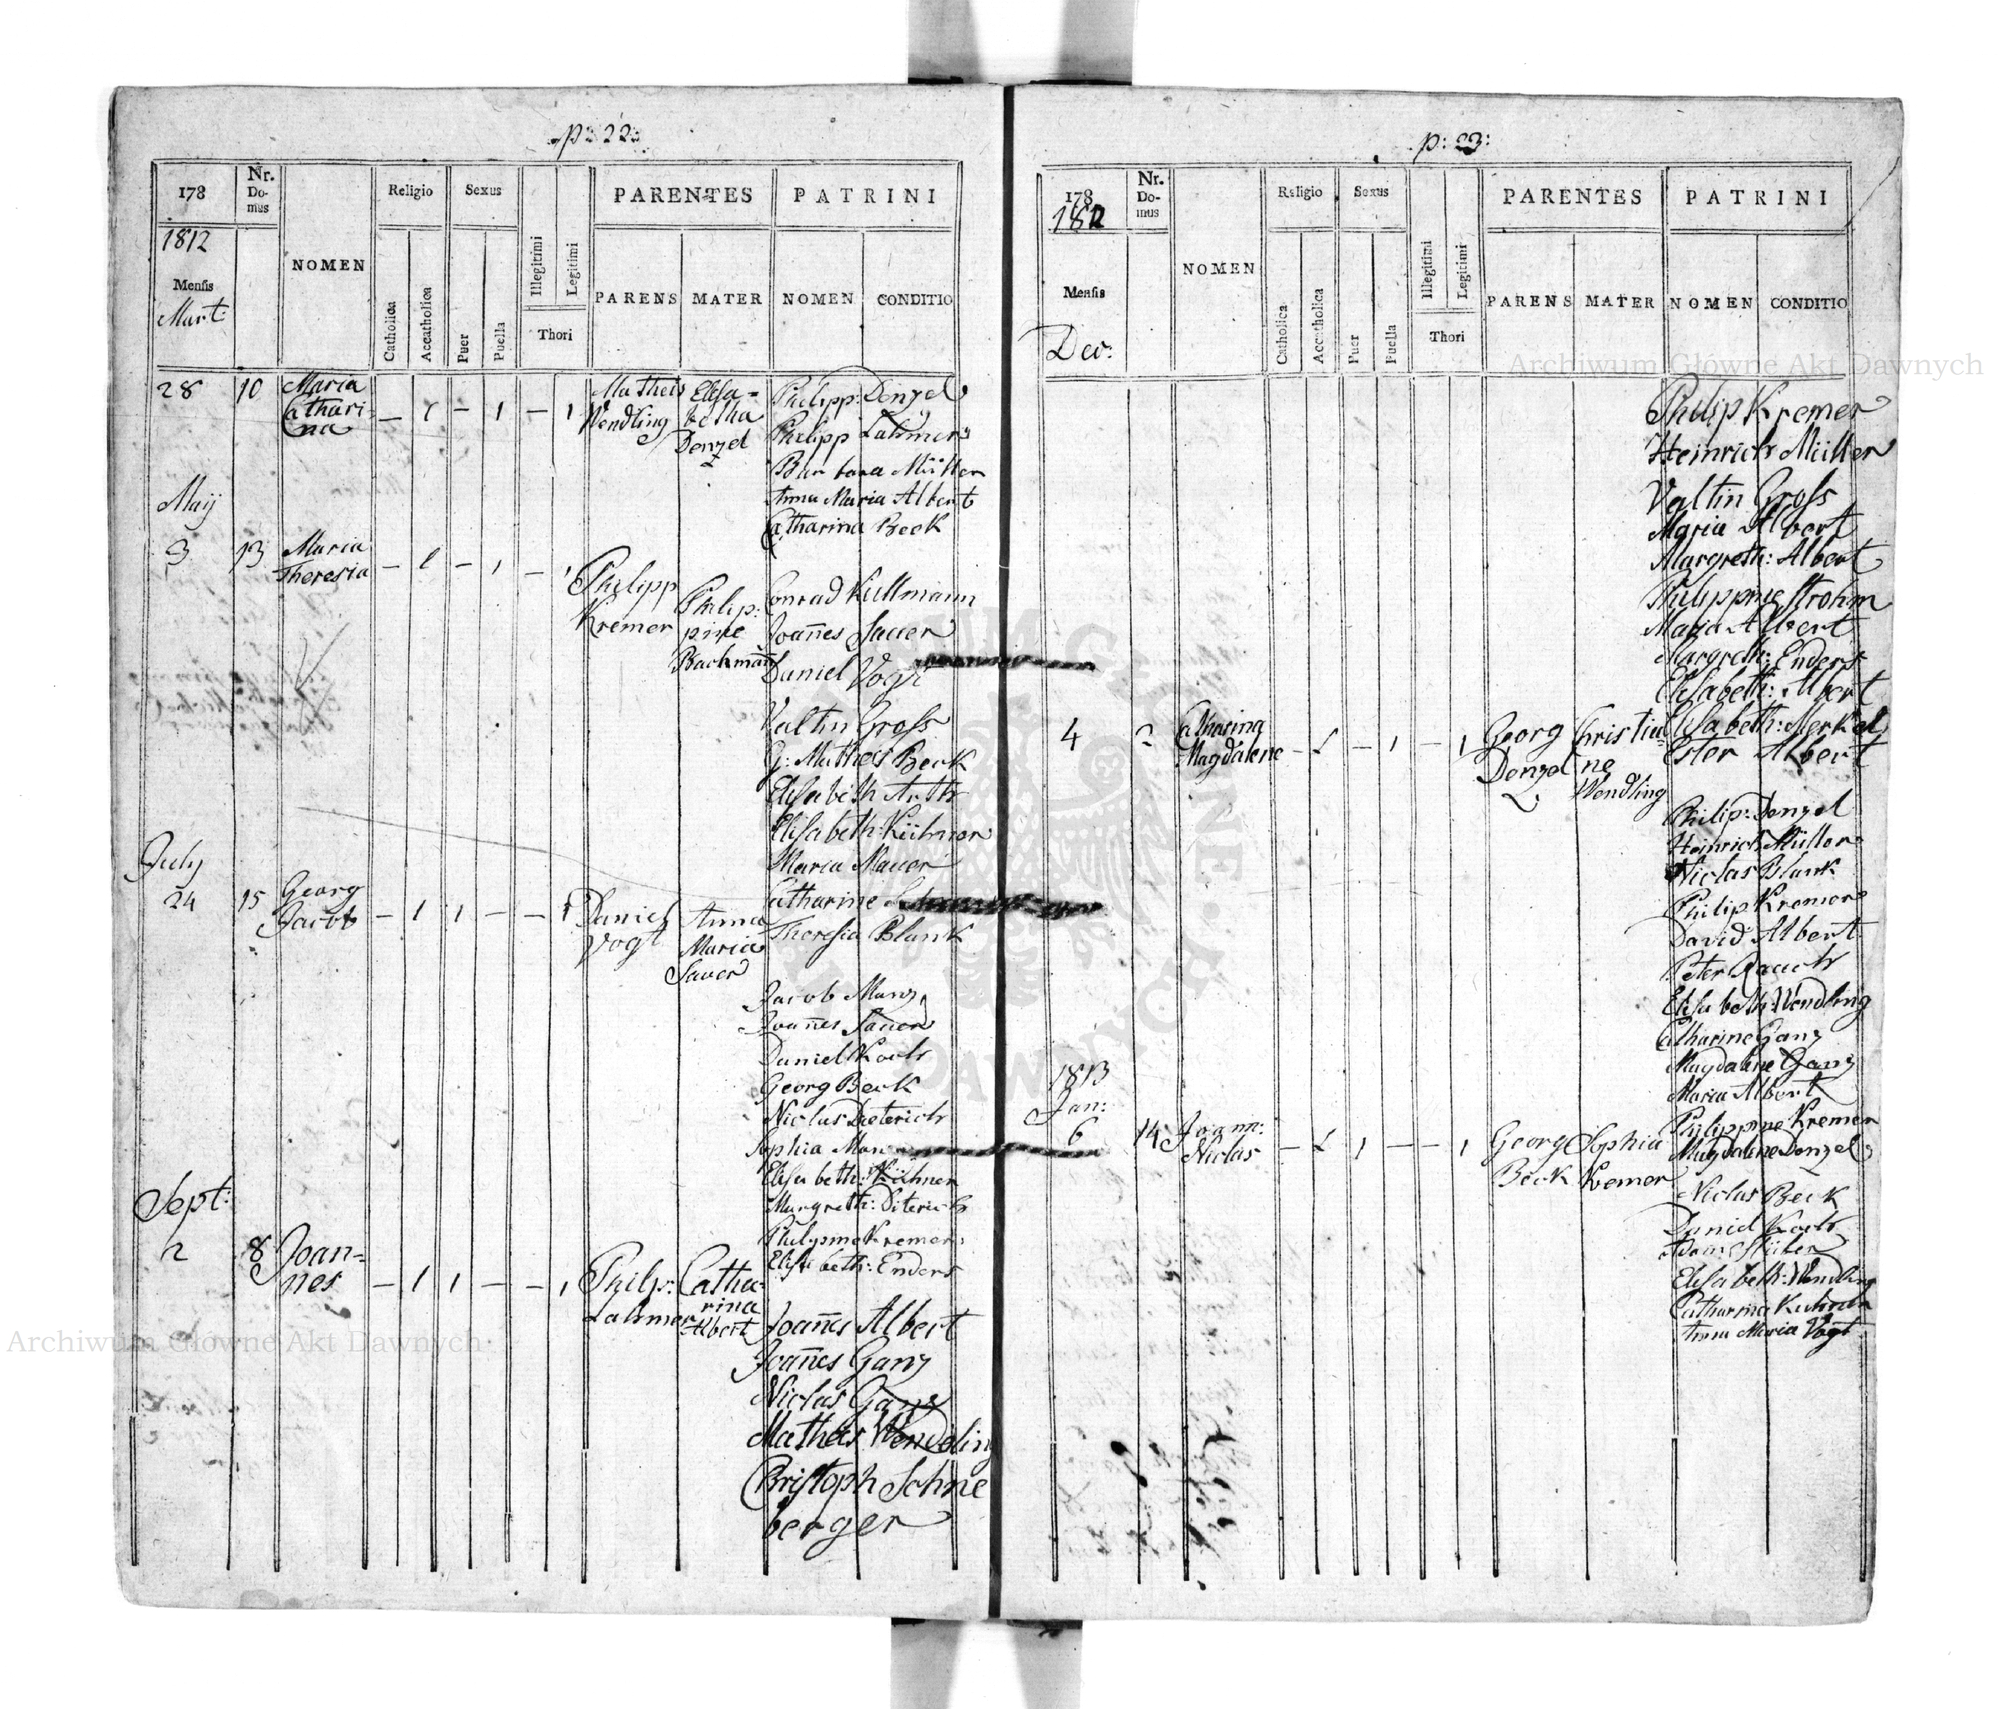 p: 22:
178
Nr. Do-mus
NOMEN
Religio
Sexus
PARENTES
PATRINI
1812
Mensis
Mart:
Catholica
Accatholica
Puer
Puella
Illegitimi
Legitimi
Thori
PARENS
MATER
NOMEN
CONDITIO
28 10 Maria Cathari-na — 1 — 1 — 1 Matheis Wendling Elisa-betha Denzel
Philipp: Denzel
Philipp Lahmer
Barbara Müller
Anna Maria Albert
Catharina Beck
Maij
3 13 Maria Theresia — 1 — 1 — 1 Philipp Kremer Philip:pine Backmañ
Conrad Kullmann
Joañes Sauer
Daniel Vogt
Valtin Gross
G: Matheis Beck
Elisabeth Arth
Elisabeth: Kühner
Maria Mauer
Catharine
Theresia Blank
July
24 15 Georg Jacob — 1 1 — — 1 Daniel Vogt Anna Maria Sauer
Jacob Manz
Joañes Sauer
Daniel Koch
Georg Beck
Niclas Dieterich
Sophia
Elisabeth: Kühner
Margreth: Diterich
Philipine Kremer
Elisabeth: Enders
Sept:
2 8 Joan-nes — 1 1 — — 1 Philip: Lahmer Catha-rina Albert
Joañes Albert
Joañes Ganz
Niclas Ganz
Matheis Wendeling
Christoph Schne
berger
p: 23:
178
1812
Nr. Do-mus
NOMEN
Religio
Sexus
PARENTES
PATRINI
Mensis
Dec:
Catholica
Accatholica
Puer
Puella
Illegitimi
Legitimi
Thori
PARENS
MATER
NOMEN
CONDITIO
Philip Kremer
Heinrich Müller
Valtin Gross
Maria Albert
Margreth: Albert
Philippine Strohm
Maria Albert
Margreth: Enders
Elisabeth: Albert
4 2 Catharina Magdalene — 1 — 1 — 1 Georg Denzel Christia-ne Wendling
Elisabeth: Merkel
Ester Albert
Philip: Denzel
Heinrich Müller
Niclas Blank
Philip Kremer
David Albert
Peter Rauch
Elisabeth: Wendling
Catharine Ganz
Magdalene Ganz
Maria Albert
Philippine Kremer
Magdalene Denzel
1813
Jan:
6 14 Joann: Niclas — 1 1 — — 1 Georg Beck Sophia Kremer
Niclas Beck
Daniel Koch
Adam Stüber
Elisabeth: Wendling
Catharina Kuhner
Anna Maria Vogt
Archiwum Główne Akt Dawnych
Archiwum Główne Akt Dawnych